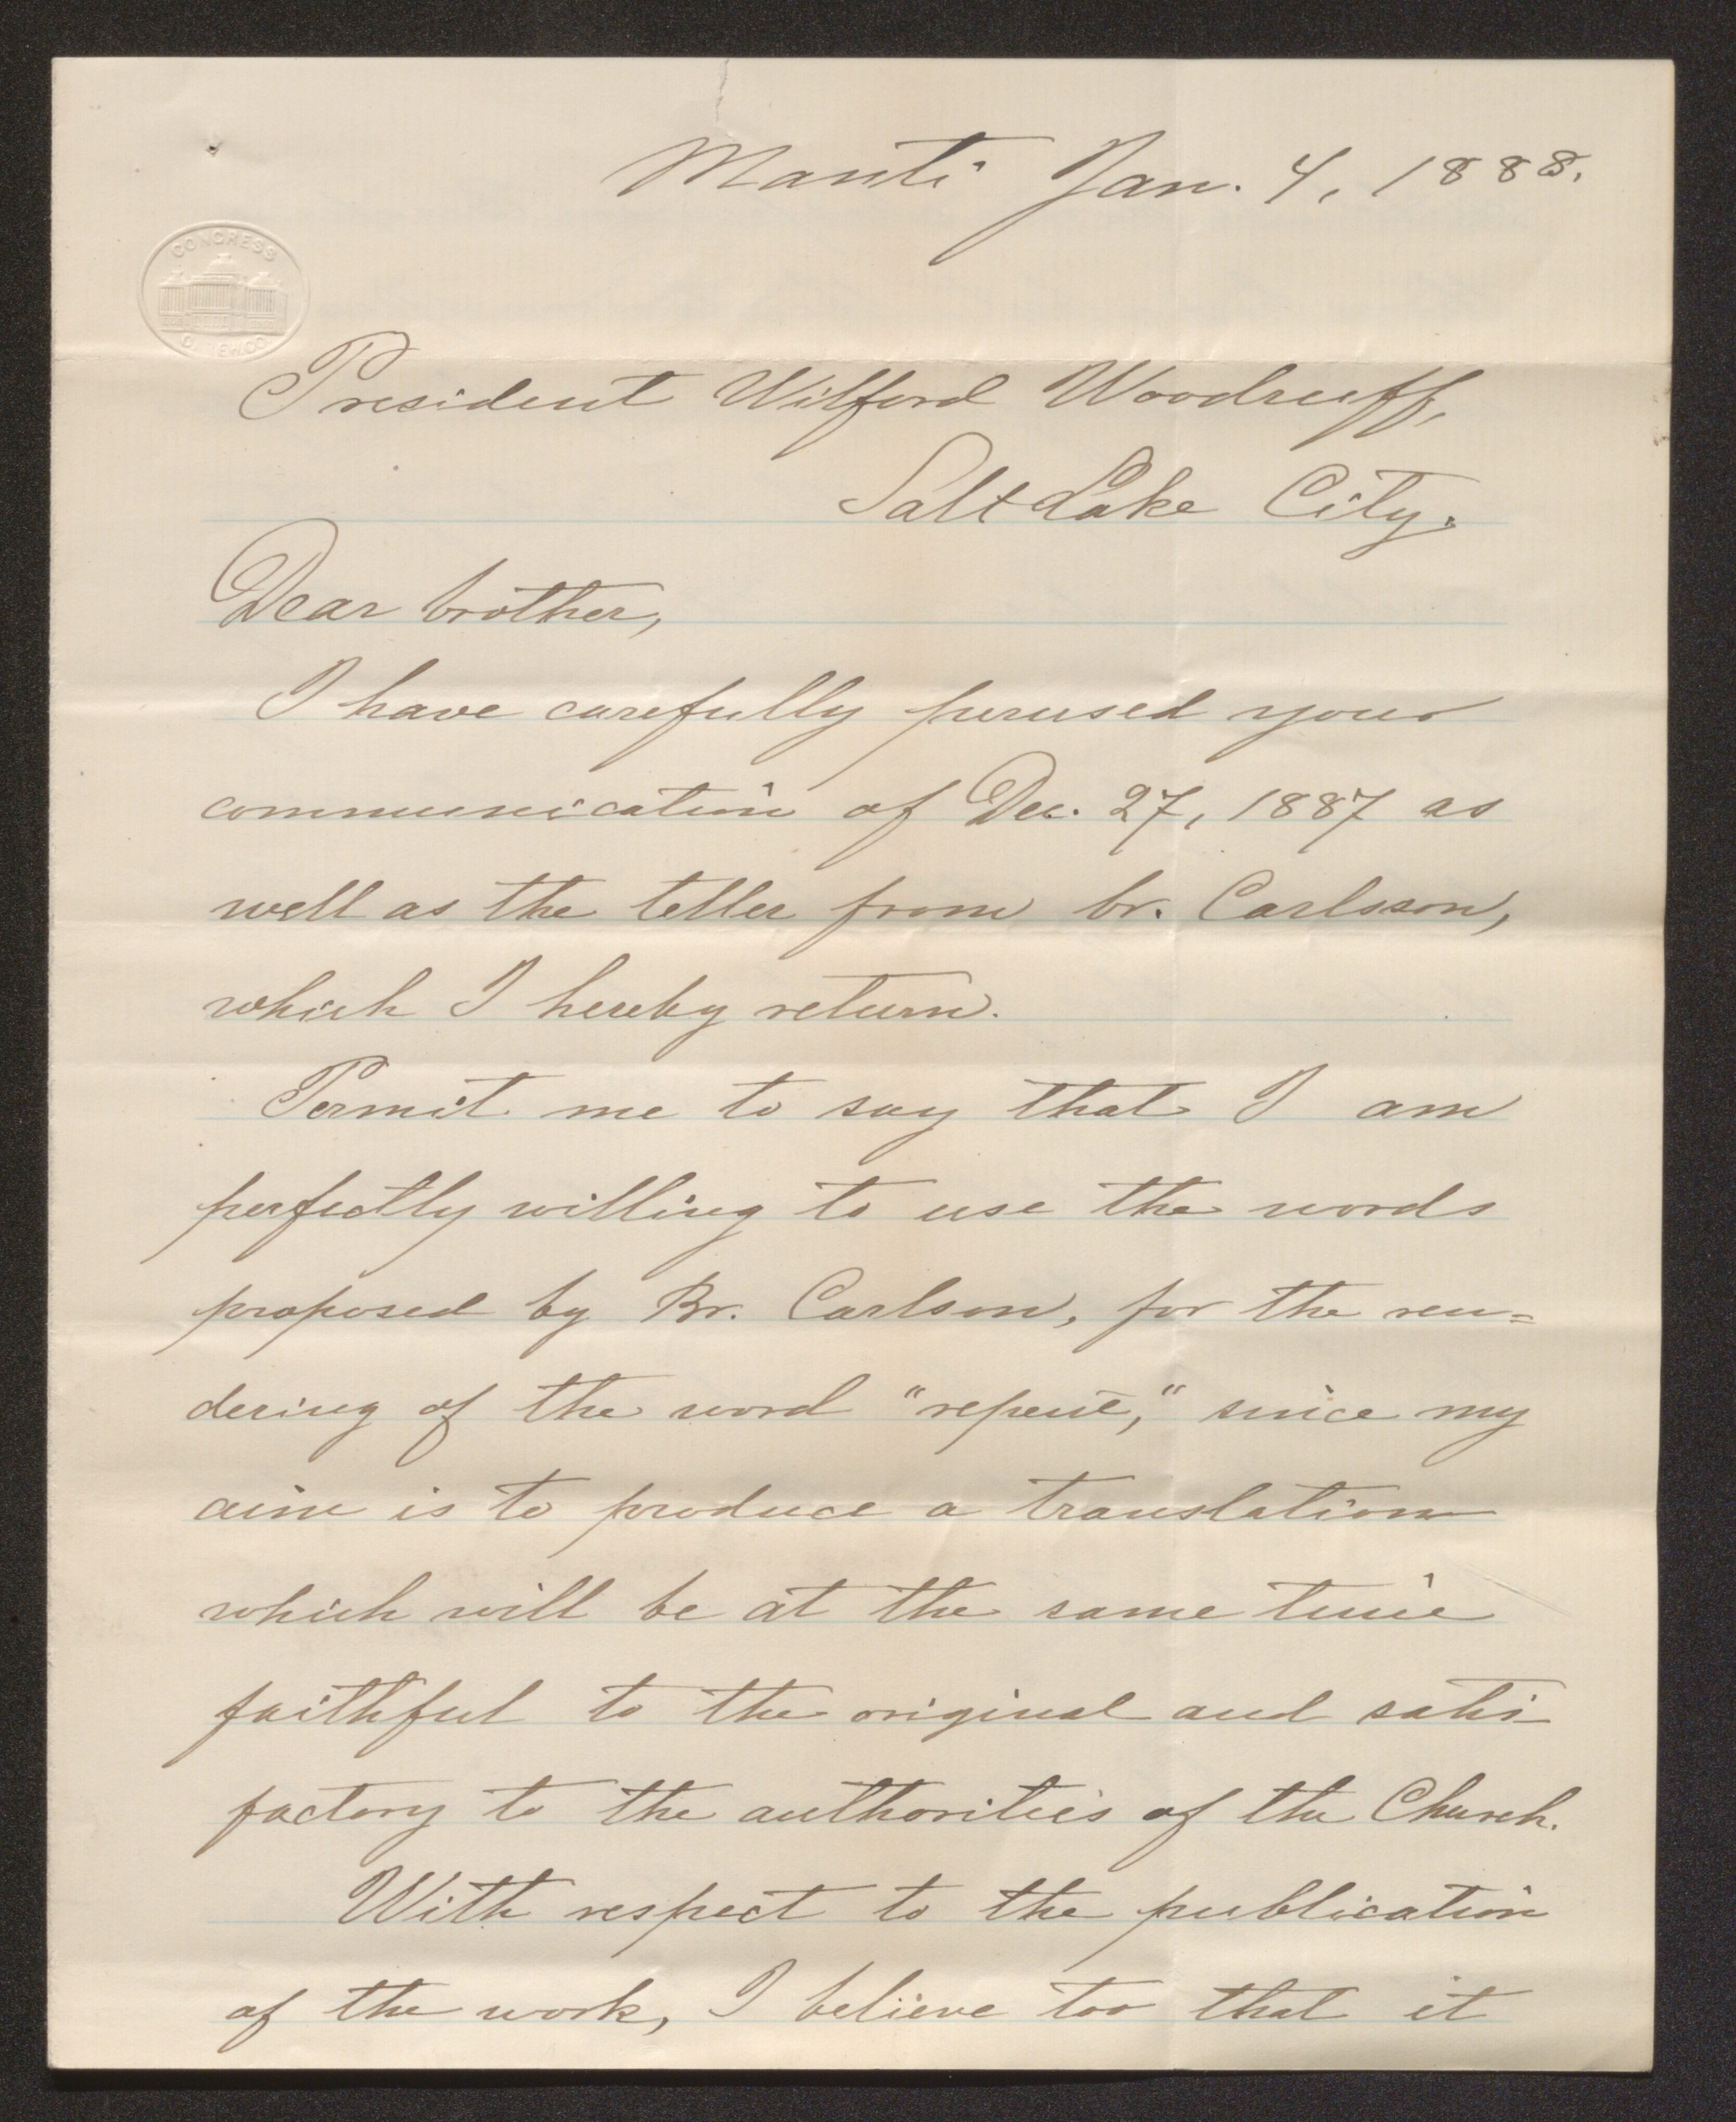 Manti Jan. 4, 1888.
CONGRESS
President Wilford Woodruff,
Salt Lake City.
Dear brother,
I have carefully perused your
communication of Dec. 27, 1887 as
well as the letter from br. Carlsson,
which I hereby return.
Permit me to say that I am
perfectly willing to use the words
proposed by Br. Carlson, for the ren=
dering of the word "repent," since my
aim is to produce a translation
which will be at the same time
faithful to the original and satis-
factory to the authorities of the Church.
With respect to the publication
of the work, I believe too that it